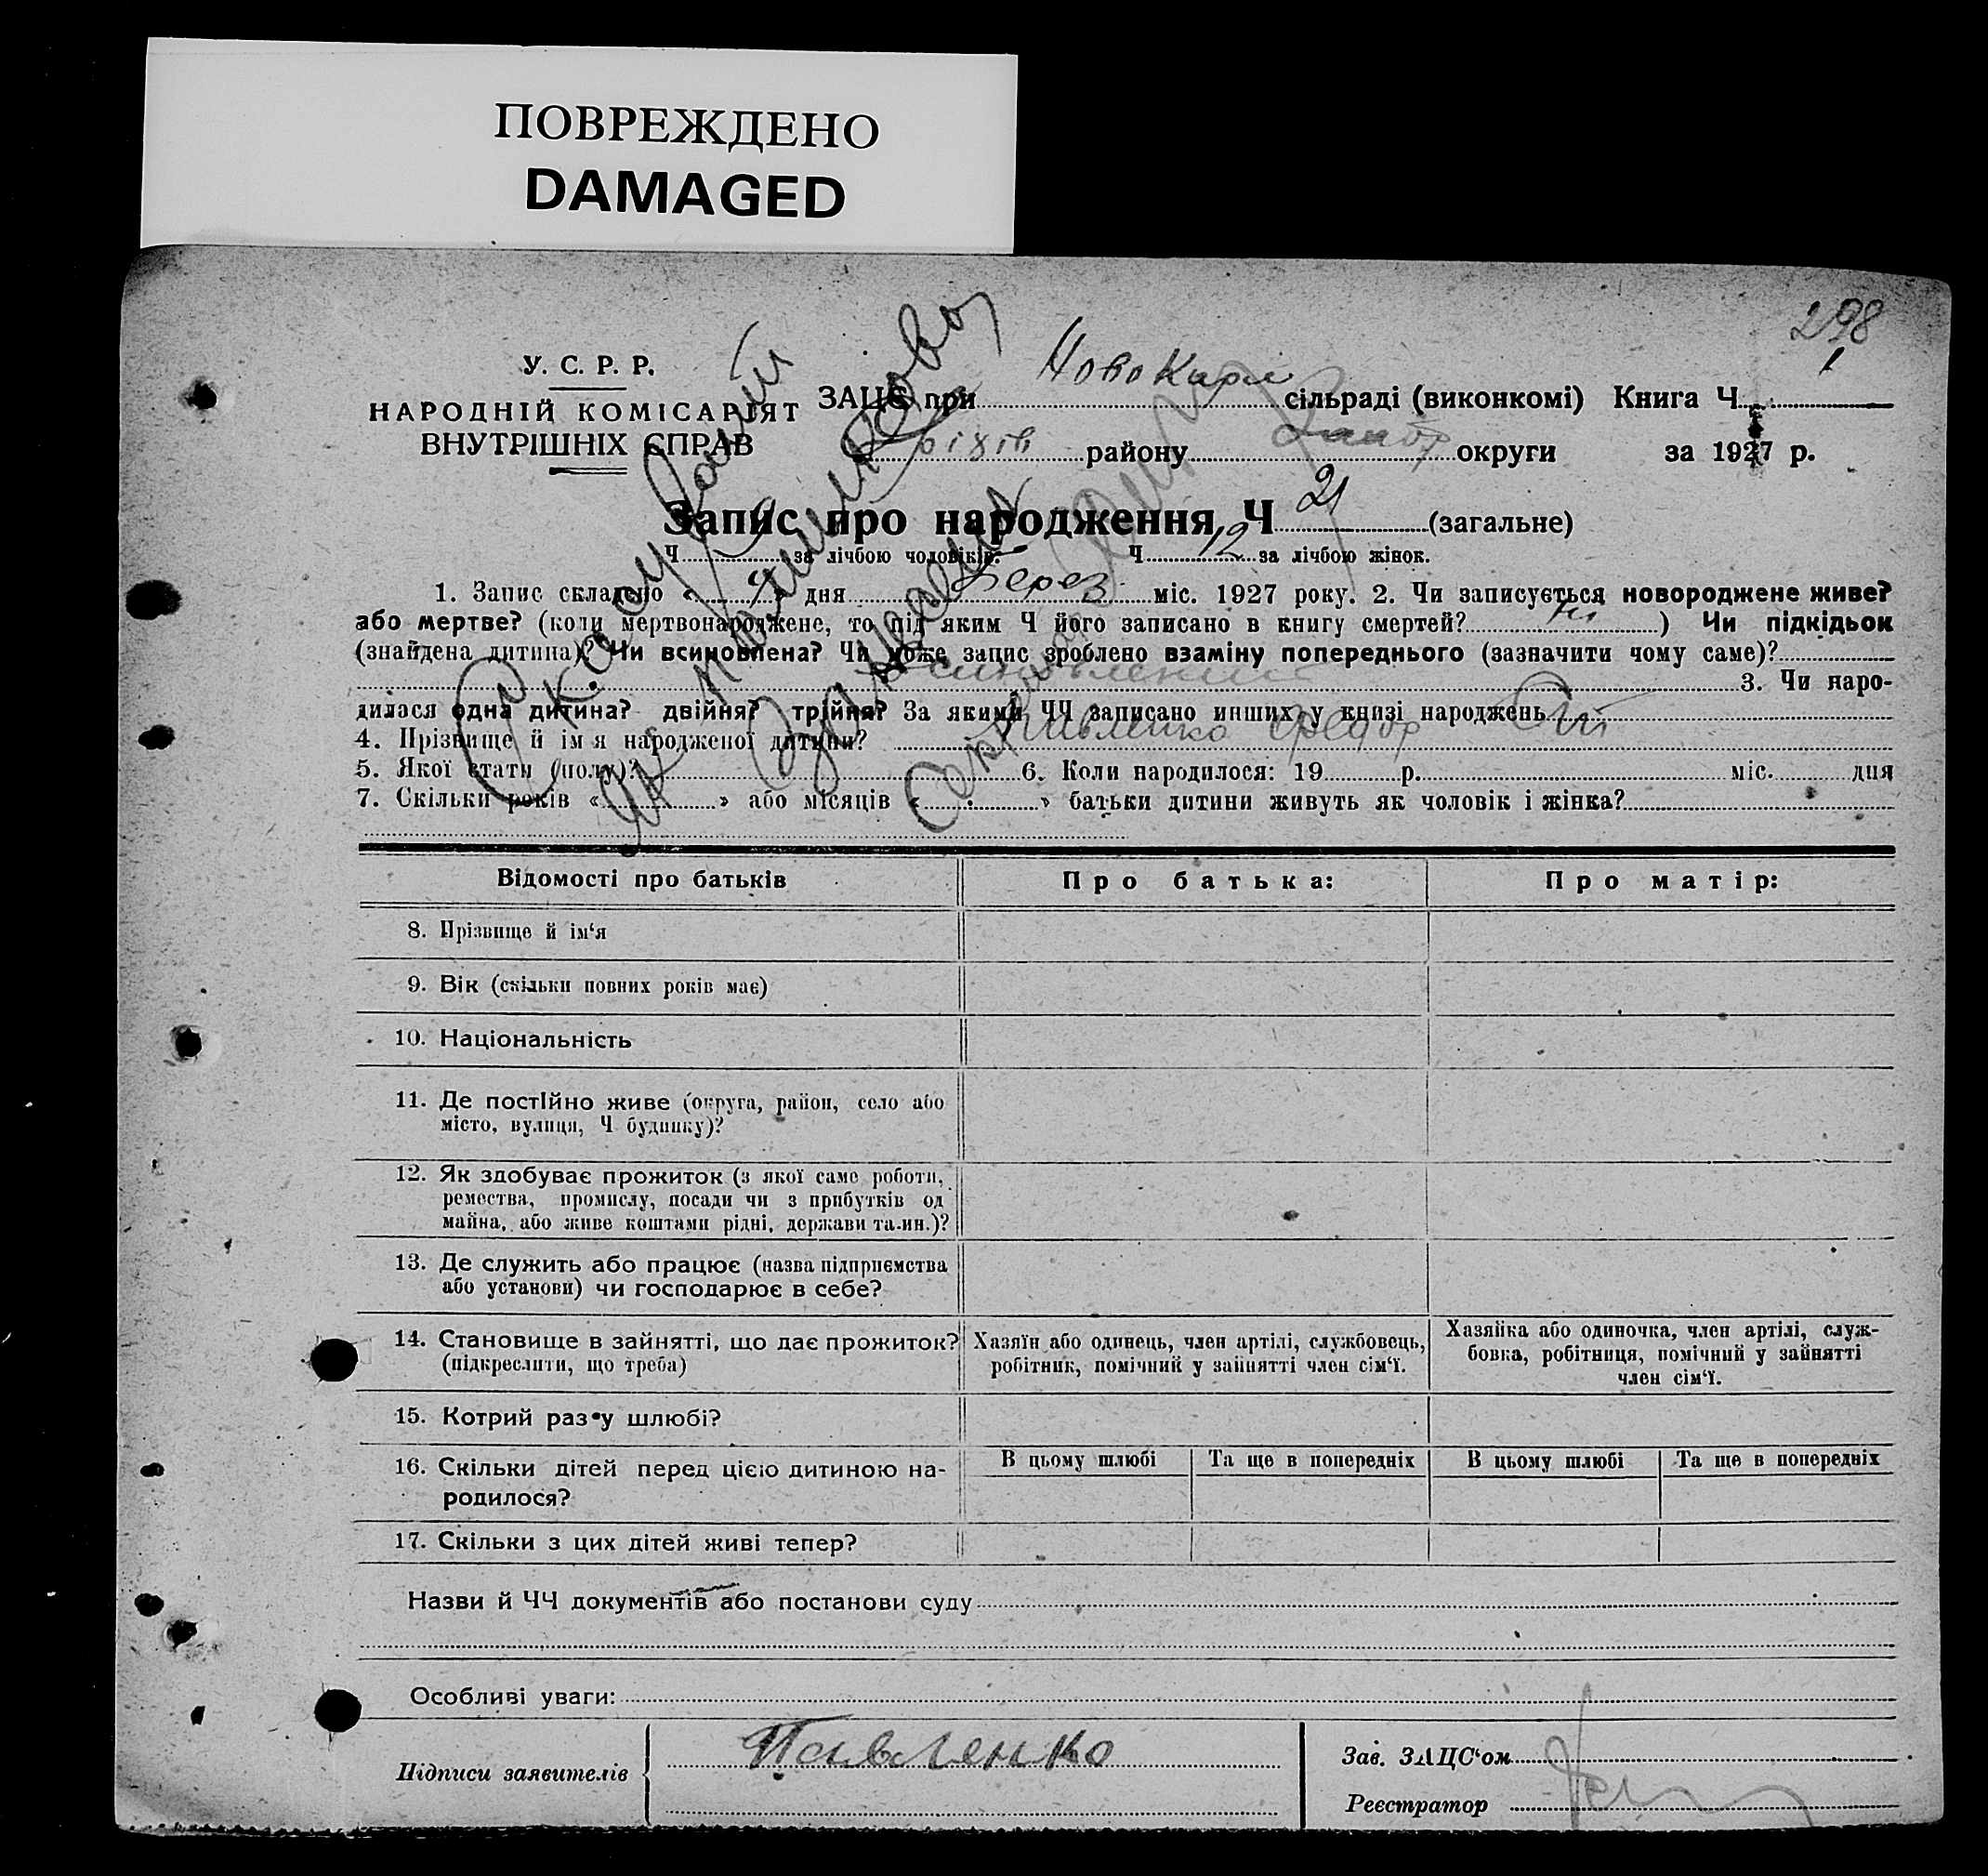 ПОВРЕЖДЕНО
DAMAGED
298
У. С. Р. Р.
НАРОДНІЙ КОМІСАРІЯТ
ВНУТРІШНІХ СПРАВ
ЗАЦС при сільраді (виконкомі) Книга Ч. 1
оріхів району Запор округи за 1927 р.
Запис про народження Ч 21 (загальне)
Ч 9 за лічбою чоловіків. Ч 12 за лічбою жінок.
1. Запис складено « 4 » дня Берез міс. 1927 року. 2. Чи записується новороджене живе?
або мертве? (коли мертвонароджене, то під яким Ч його записано в книгу смертей? ) Чи підкідьок
(знайдена дитина)? Чи всиновлена? Чи може запис зроблено взаміну попереднього (зазначити чому саме)?
3. Чи наро-
дилася одна дитина? двійня? трійня? За якими ЧЧ записано инших у книзі народжень
4. Прізвище й ім'я народженої дитини? Павленко Федор
5. Якої стати (полу)? 6. Коли народилося: 19 р. міс. дня
7. Скільки років « » або місяців « » батьки дитини живуть як чоловік і жінка?
Відомості про батьків Про батька: Про матір:
8. Прізвище й ім'я
9. Вік (скільки повних років має)
10. Національність
11. Де постійно живе (округа, район, село або
місто, вулиця, Ч будинку)?
12. Як здобуває прожиток (з якої саме роботи,
ремества, промислу, посади чи з прибутків од
майна, або живе коштами рідні, держави та ин.)?
13. Де служить або працює (назва підприємства
або установи) чи господарює в себе?
14. Становище в зайнятті, що дає прожиток?
(підкреслити, що треба)
Хазяїн або одинець, член артілі, службовець,
робітник, помічний у зайнятті член сім'ї.
Хазяйка або одиночка, член артілі, служ-
бовка, робітниця, помічний у зайнятті
член сім'ї.
15. Котрий раз у шлюбі?
16. Скільки дітей перед цією дитиною на-
родилося?
В цьому шлюбі Та ще в попередніх В цьому шлюбі Та ще в попередніх
17. Скільки з цих дітей живі тепер?
Назви й ЧЧ документів або постанови суду
Особливі уваги:
Підписи заявителів Павленко
Зав. ЗАЦС'ом
Реєстратор